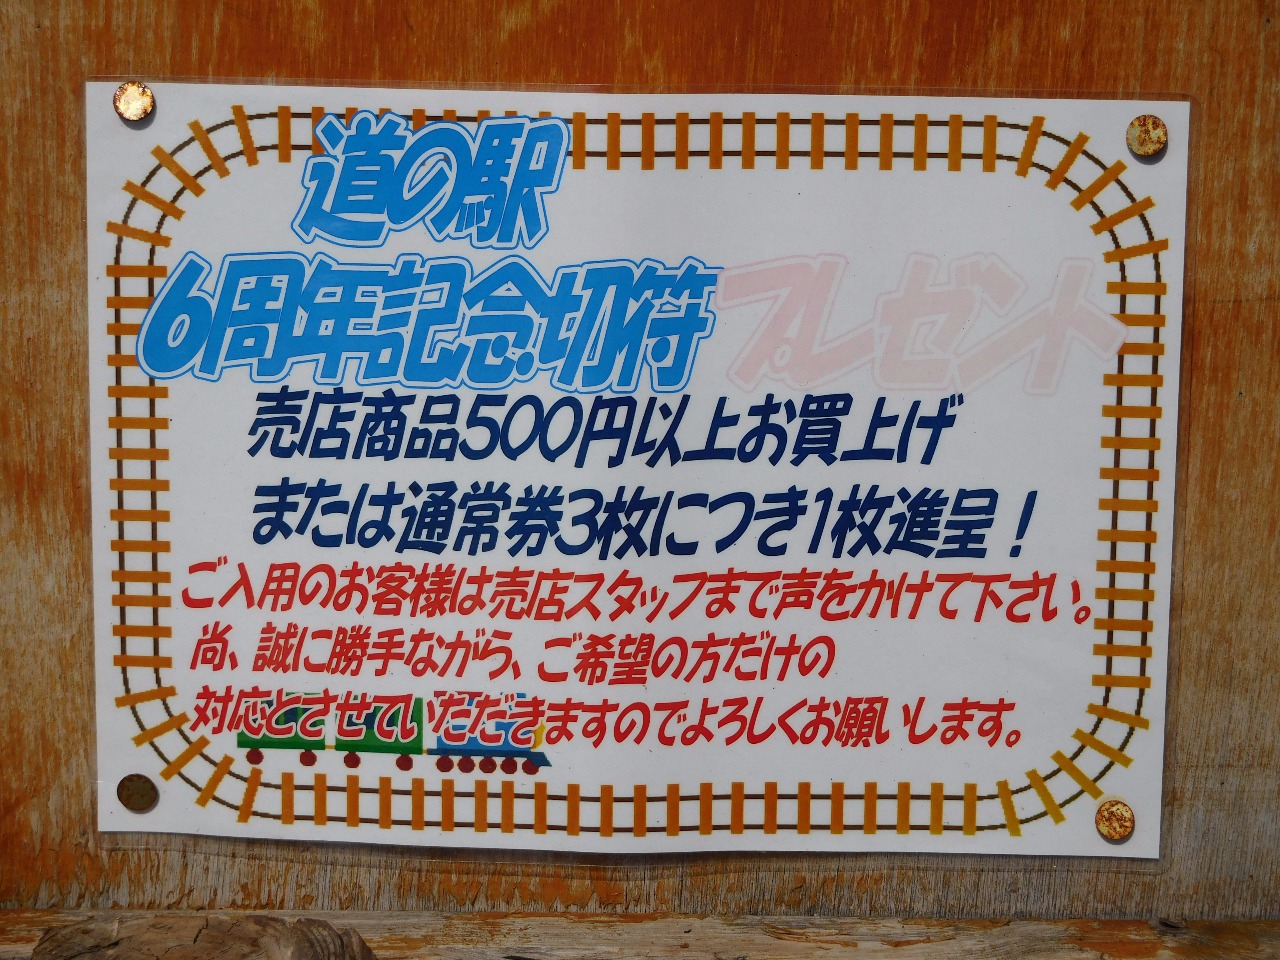 道の駅
6周年記念切符プレゼント
売店商品500円以上お買上げ
または通常券3枚につき1枚進呈！
ご入用のお客様は売店スタッフまで声をかけて下さい。
尚、誠に勝手ながら、ご希望の方だけの
対応とさせていただきますのでよろしくお願いします。